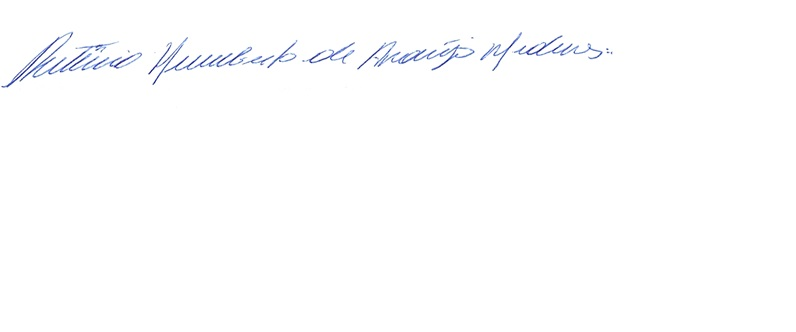 Antônio Humberto de Araújo Medeiros